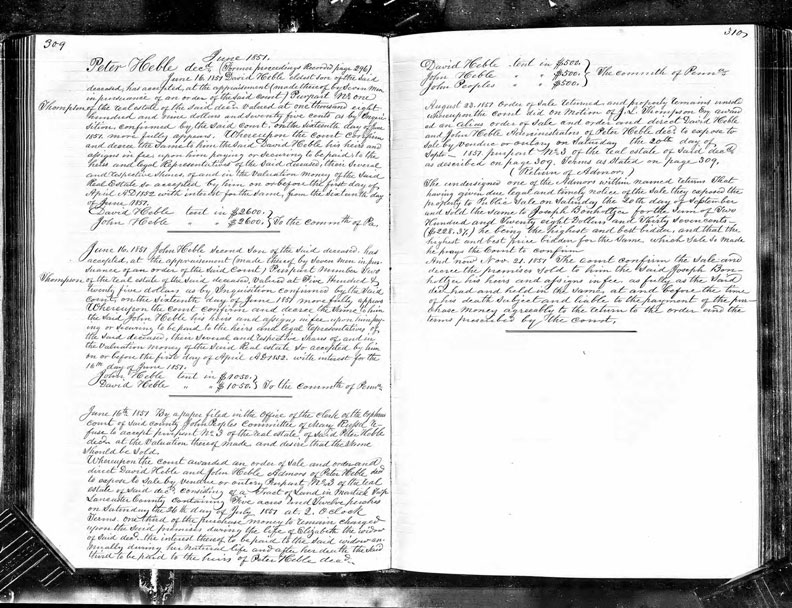 309
June 1851.
Peter Heble decd. (Former proceedings Recorded page 296)
June 16. 1851 David Heble eldest son of the Said
deceased, has accepted, at the appraisement (made thereof by Seven Men
in pursuance of an order of the Said Court) Purpart No. one
Thompson of the real estate of the Said decd. valued at one thousand eight
hundred and nine dollars and seventy five cents as by Inqui-
sition confirmed by the Said Court, on the sixteenth day of June
1851. more fully appears. Whereupon the Court Confirm
and decree the Same to him the Said David Heble his heirs and
assigns in fee, upon him paying or Securing to be paid to the
heirs and legal Representatives of the Said deceased, their Several
and respective Shares of and in the Valuation money of the Said
Real Estate so accepted by him on or before the first day of
April AD 1852 with interest for the Same, from the Sixteenth day
of June 1851.
David Heble tent in $2600.
John Heble " " $2600. } To the Commth of Pa.
June 16. 1851 John Heble Second Son of the Said deceased has
accepted, at the appraisement (made thereof by Seven Men in pur-
suance of an order of the Said Court) Purpart Number Two
Thompson of the real estate of the Said deceased, Valued at Five Hundred &
Twenty five dollars as by Inquisition confirmed by the Said
Court, on the Sixteenth day of June 1851 more fully appears
Whereupon the Court Confirm and decree the Same to him
the Said John Heble his heirs and assigns in fee, upon him pay-
ing or Securing to be paid to the heirs and legal representatives of
the Said deceased, their Several and respective Shares of and in
the Valuation money of the Said Real estate so accepted by him
on or before the first day of April AD 1852. with interest for the
16th day of June 1851.
John Heble tent in $1050.
David Heble " " $1050. } To the Commth of Penna.
June 16th 1851 By a paper filed in the Office of the Clerk of the Orphans
Court of Said County John Peoples Committee of Mary Re-
fuse to accept purpart No. 3 of the real estate of Said Peter Heble
decd. at the Valuation thereof made and desire that the Same
Should be Sold.
Whereupon the Court awarded an order of Sale and order and
direct David Heble and John Heble Admors of Peter Heble decd
to expose to Sale by Vendue or outcry Purpart No. 3 of the real
estate of Said decd. Consisting of a Tract of Land in Martick Twp
Lancaster County Containing Five acres and Twelve perches
on Saturday the 26th day of July 1851 at 2 O'clock
Terms. one third of the purchase money to remain charged
upon the Said premises during the life of Elizabeth the widow
of Said decd. the interest thereof to be paid to the Said widow an-
nually during her natural life and after her death the Said
third to be paid to the heirs of Peter Heble decd.
310
David Heble tent in $500.
John Heble " " $500. } The Commth of Penna
John Peoples " " $500.
August 23. 1851 Order of Sale returned and property remains unsold
whereupon the Court did on Motion of J. L. Thompson Esq award
an alias order of Sale and order and direct David Heble
and John Heble Administrators of Peter Heble decd to expose to
Sale by Vendue or outcry on Saturday the 20th day of
Septr 1851 purpart No. 3 of the real estate of Said decd
as described on page 309. Terms as Stated on page 309.
(Return of Admor.)
The undersigned one of the Admors within named returns That
having given due legal and timely notice of the Sale they exposed the
property to Public Sale on Saturday the 20th day of September
and Sold the Same to Joseph Bonholtzer for the Sum of Two
Hundred and Twenty eight Dollars and Thirty Seven cents—
($228.37,) he being the highest and best bidder, and that the
highest and best price bidden for the Same which Sale So made
he prays the Court to confirm
And now Nov. 21. 1851 The Court confirm the Sale and
decree the premises Sold to him the Said Joseph Bon-
holtzer his heirs and assigns in fee. as fully as the Said
decd had and held in the Same at and before the time
of his death Subject and liable to the payment of the pur-
chase Money agreeably to the return to the order and the
terms prescribed by the Court.